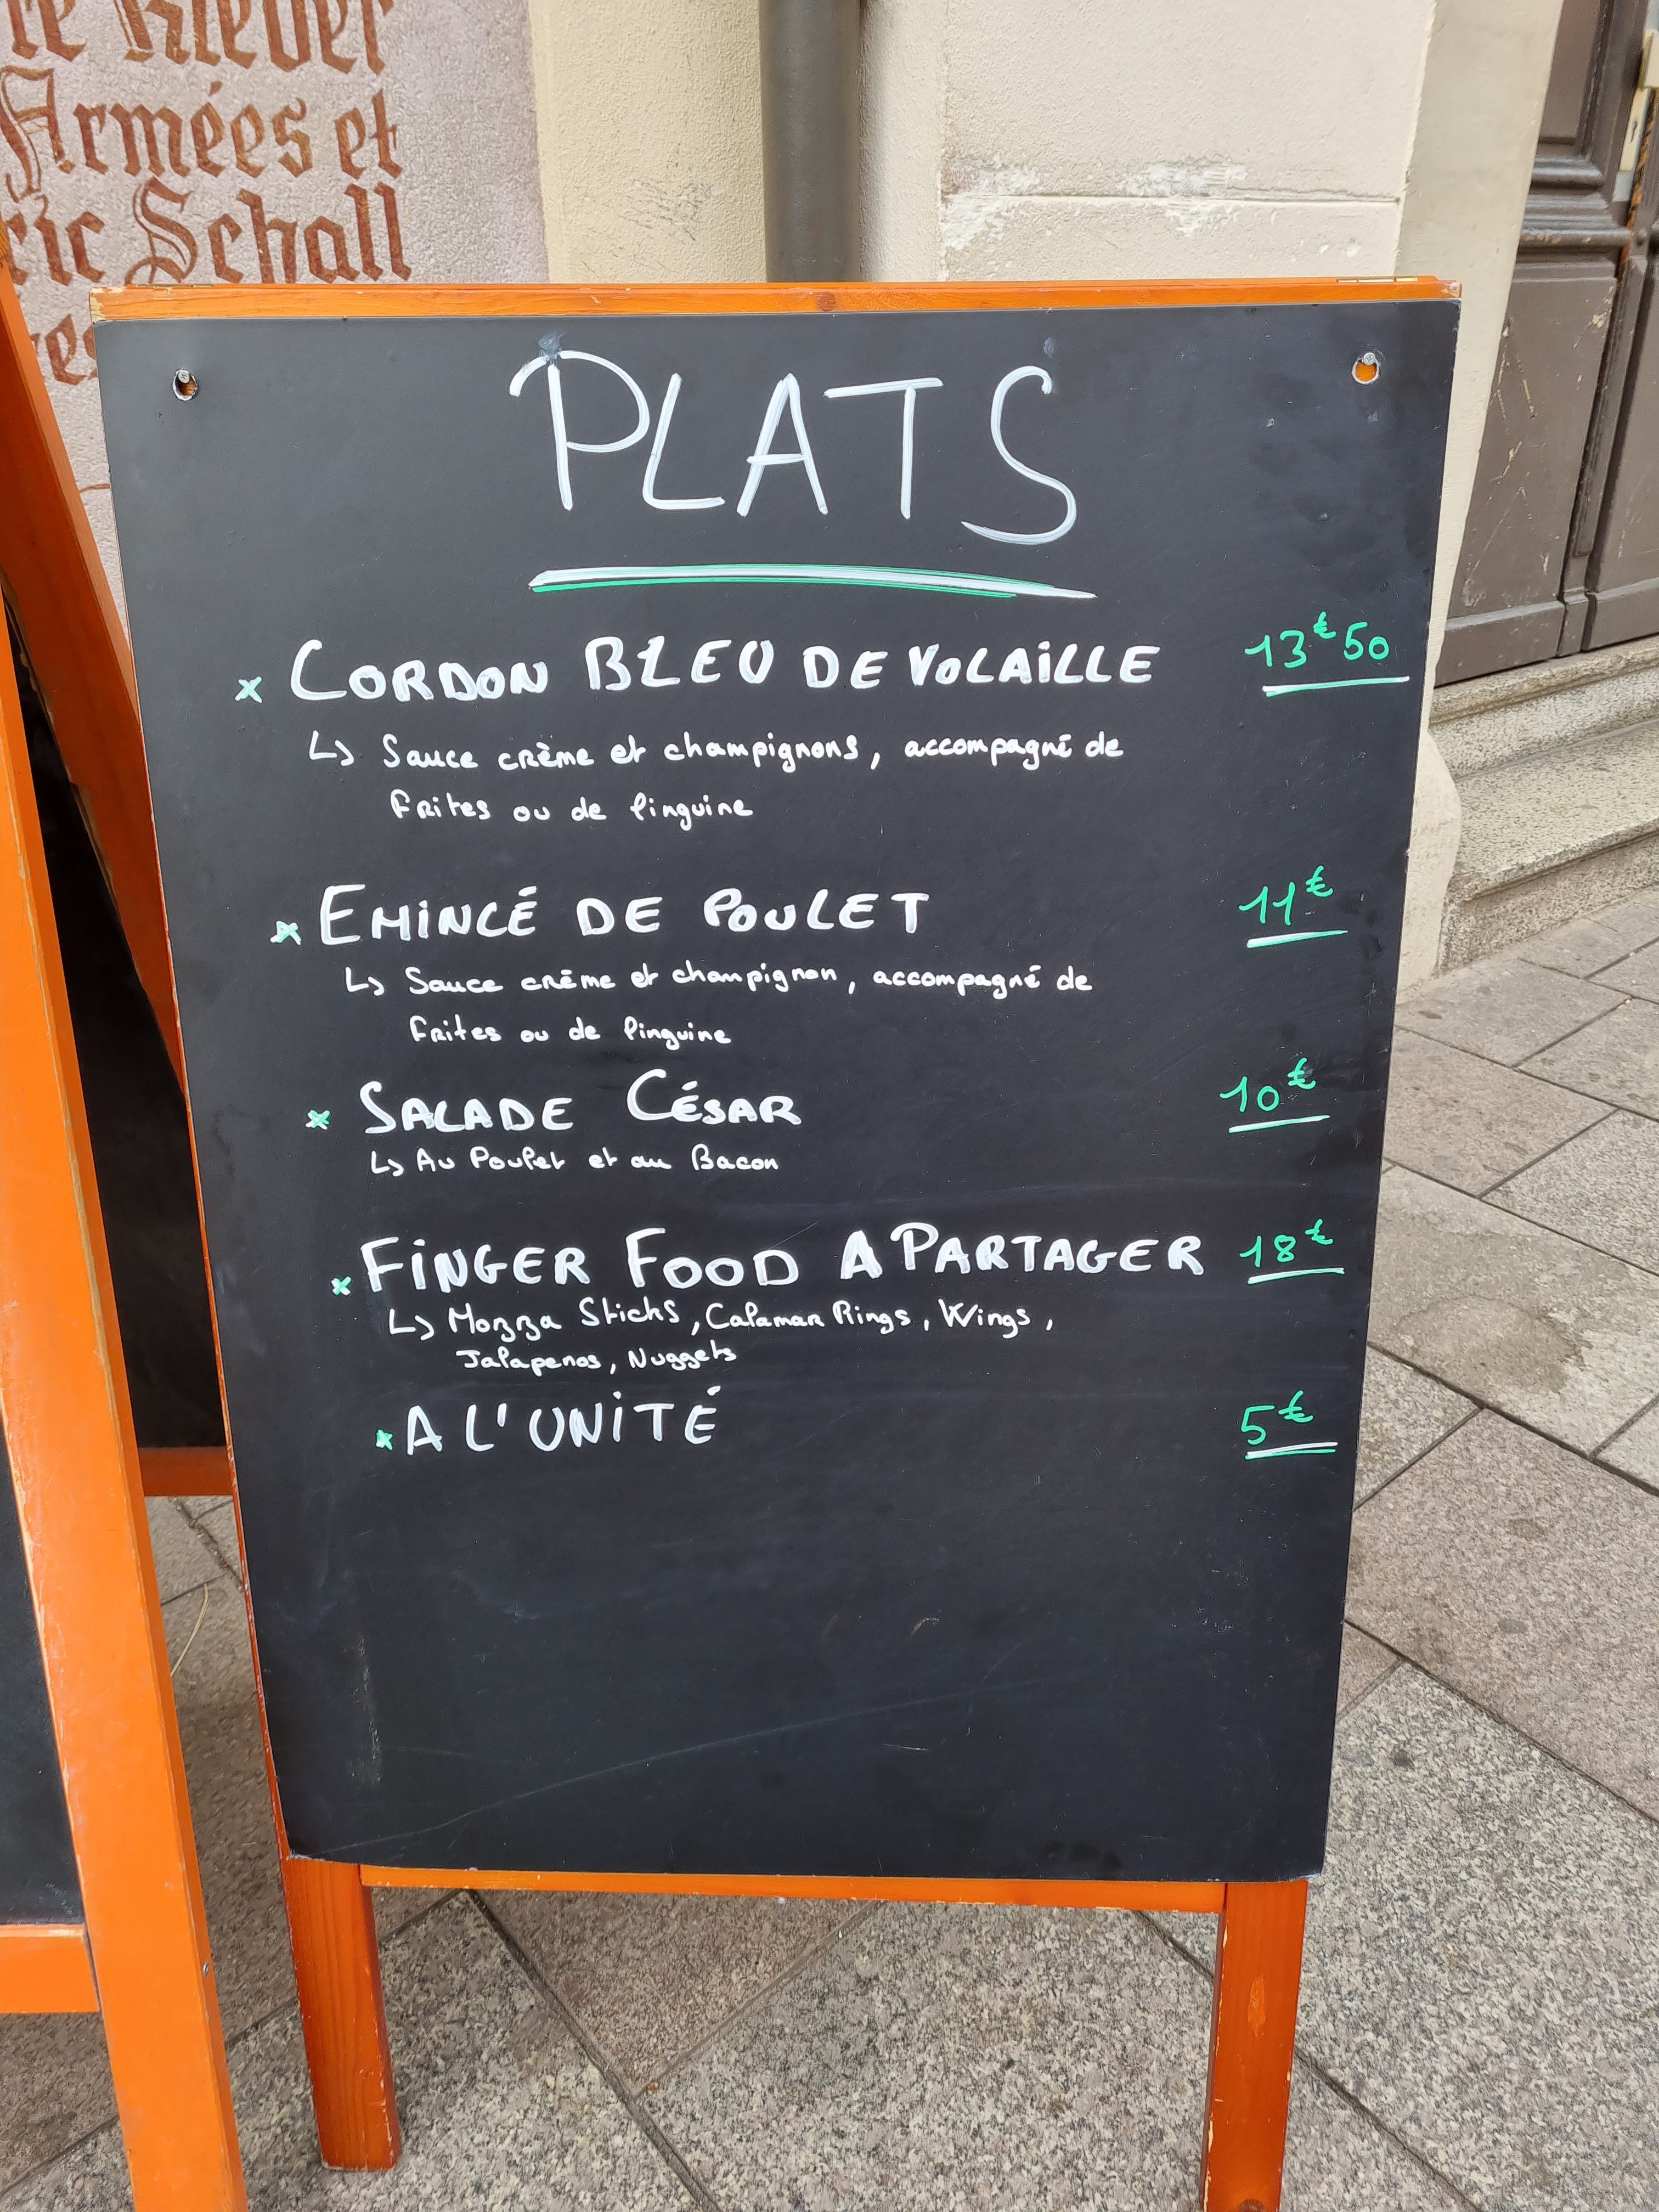 Armées et
Schall
PLATS
x CORDON BLEU DE VOLAILLE 13€50
↳ Sauce crème et champignons, accompagné de
frites ou de linguine
x EMINCÉ DE POULET 11€
↳ Sauce crème et champignon, accompagné de
frites ou de linguine
x SALADE CÉSAR 10€
↳ Au Poulet et au Bacon
x FINGER FOOD A PARTAGER 18€
↳ Mozza Sticks, Calamar Rings, Wings,
Jalapenos, Nuggets
x A L'UNITÉ 5€